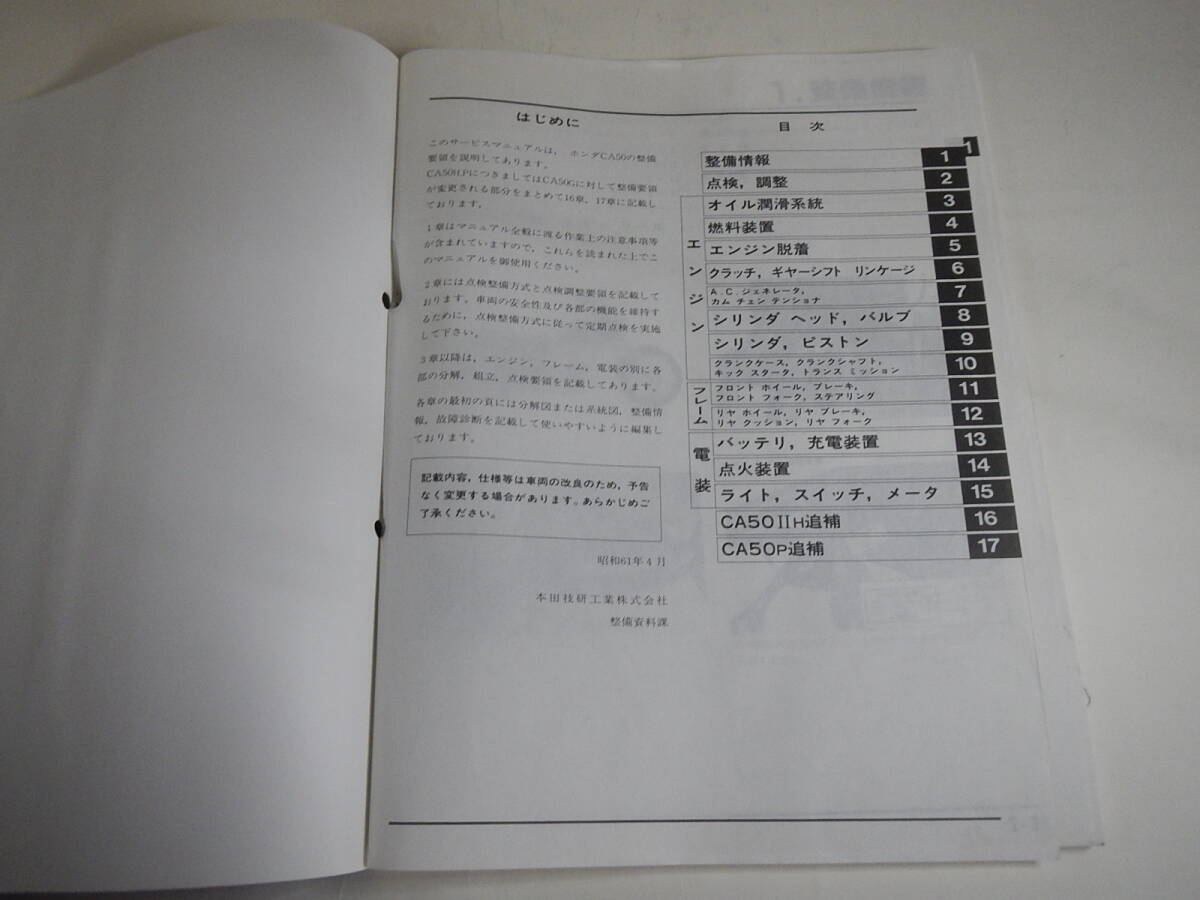 はじめに
このサービスマニュアルは，ホンダCA50の整備
要領を説明してあります。
CA50H,PにつきましてはCA50Gに対して整備要領
が変更される部分をまとめて16章，17章に記載し
ております。
1章はマニュアル全般に渡る作業上の注意事項等
が含まれていますので，これらを読まれた上でこ
のマニュアルを御使用ください。
2章には点検整備方式と点検調整要領を記載して
おります。車両の安全性及び各部の機能を維持す
るために，点検整備方式に従って定期点検を実施
して下さい。
3章以降は，エンジン，フレーム，電装の別に各
部の分解，組立，点検要領を記載してあります。
各章の最初の頁には分解図または系統図，整備情
報，故障診断を記載して使いやすいように編集し
ております。
記載内容，仕様等は車両の改良のため，予告
なく変更する場合があります。あらかじめご
了承ください。
昭和61年4月
本田技研工業株式会社
整備資料課
目次
整備情報 1
点検，調整 2
エンジン
オイル潤滑系統 3
燃料装置 4
エンジン脱着 5
クラッチ，ギヤーシフト リンケージ 6
A.C.ジェネレータ，
カム チェン テンショナ 7
シリンダ ヘッド，バルブ 8
シリンダ，ピストン 9
クランクケース，クランクシャフト，
キック スタータ，トランス ミッション 10
フレーム
フロント ホイール，ブレーキ，
フロント フォーク，ステアリング 11
リヤ ホイール，リヤ ブレーキ，
リヤ クッション，リヤ フォーク 12
電装
バッテリ，充電装置 13
点火装置 14
ライト，スイッチ，メータ 15
CA50IIH追補 16
CA50P追補 17
1